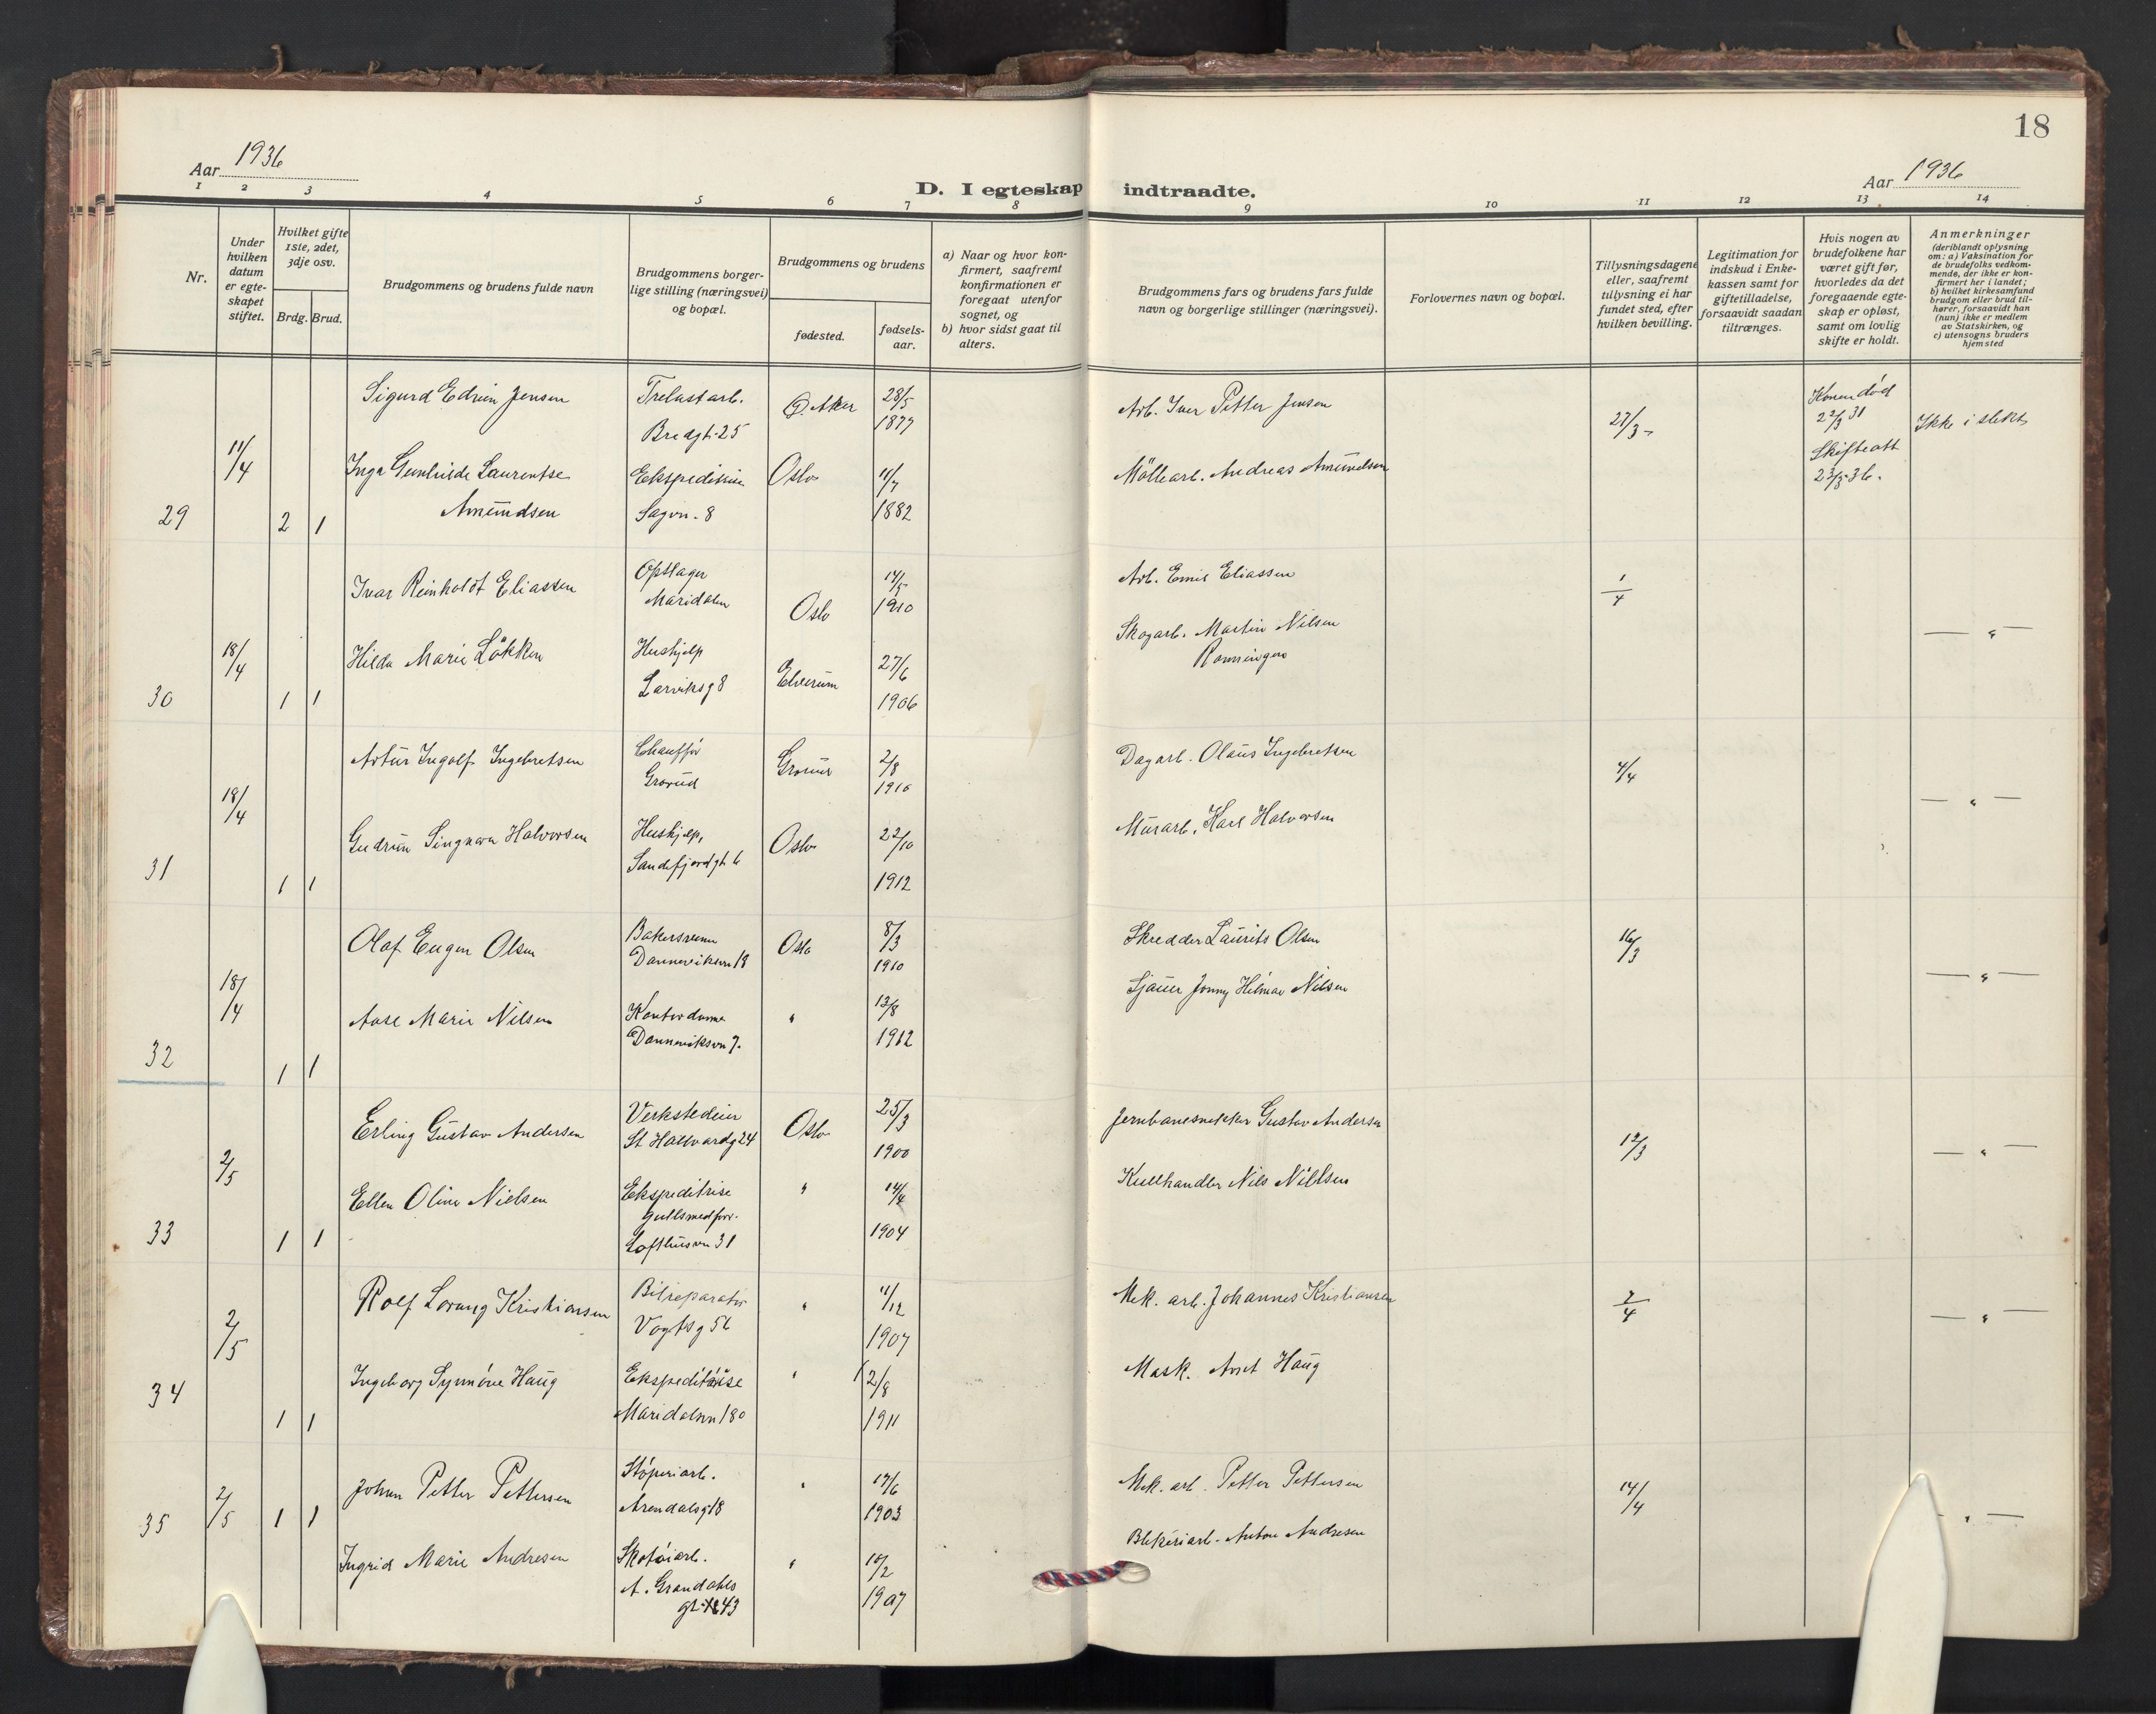 18
Aar 1936
Aar 1936
D. I egteskap indtraadte.
1 2 3 4 5 6 7 8 9 10 11 12 13 14
Nr.
Under hvilken datum er egteskapet stiftet.
Hvilket gifte 1ste, 2det, 3dje osv.
Brdg. Brud.
Brudgommens og brudens fulde navn
Brudgommens borgerlige stilling (næringsvei) og bopæl.
Brudgommens og brudens
fødested.
fødselsaar.
a) Naar og hvor konfirmert, saafremt konfirmationen er foregaat utenfor sognet, og
b) hvor sidst gaat til alters.
Brudgommens fars og brudens fars fulde navn og borgerlige stillinger (næringsvei).
Forlovernes navn og bopæl.
Tillysningsdagene eller, saafremt tillysning ei har fundet sted, efter hvilken bevilling.
Legitimation for indskud i Enkekassen samt for giftetilladelse, forsaavidt saadan tiltrænges.
Hvis nogen av brudefolkene har været gift før, hvorledes da det foregaaende egteskap er opløst, samt om lovlig skifte er holdt.
Anmerkninger (deriblandt oplysning om: a) Vaksination for de brudefolks vedkommende, der ikke er konfirmert her i landet; b) hvilket kirkesamfund brudgom eller brud tilhører, forsaavidt han (hun) ikke er medlem av Statskirken, og c) utensogns bruders hjemsted
29 11/4 2 1
Sigurd Edvin Jensen Trelastarb. Ø. Aker 28/5 Arb. Iver Petter Jensen 27/3 Konen død
Bredgt. 25 1877 22/3 31 Ikke i slekt
Inga Gunhilde Laurentse Ekspeditrise Oslo 11/7 Möllearb. Andreas Amundsen Skifteatt
Amundsen Sagvn. 8 1882 23/3-36.
30 18/4 1 1
Ivar Reinholdt Eliassen Opslager Oslo 14/5 Arb. Emil Eliassen 1/4
Maridalen 1910
Hilda Marie Løkken Hushjelp Elverum 27/6 Skogarb. Martin Nilsen — " —
Larviksg 8 1906 Rønningen
31 18/4 1 1
Artur Ingolf Ingebretsen Chauffør Grorud 2/8 Dagarb. Olaus Ingebretsen 4/4
Grorud 1910
Gudrun Singnora Halvorsen Hushjelp, Oslo 22/10 Murarb. Karl Halvorsen — " —
Sandefjordgt 6 1912
32 18/4 1 1
Olaf Eugen Olsen Bakersvenn Oslo 8/3 Skredder Laurits Olsen 16/3
Danneviksvn 18 1910
Aase Marie Nilsen Kontordame " 13/8 Sjauer Jonny Hilmar Nilsen — " —
Danneviksvn 7. 1912
33 2/5 1 1
Erling Gustav Andersen Verkstedeier Oslo 25/3 Jernbanesnekker Gustav Andersen 12/3
St. Hallvardg 24 1900
Ellen Oline Nielsen Ekspeditrise " 14/4 Kullhandler Nils Nielsen — " —
gullsmedforr.
Lofthusvn 31 1904
34 2/5 1 1
Rolf Lorang Kristiansen Bilreparatør " 11/12 Mek. arb. Johannes Kristiansen 2/4
Vogtsg 56 1907
Ingeborg Synnöve Haug Ekspeditrise " 12/8 Mask. Anet Haug — " —
Maridalsvn 180 1911
35 2/5 1 1
Johan Petter Pettersen Støperiarb. " 17/6 Mek. arb. Petter Pettersen 14/4
Arendalsg 18 1903
Ingrid Marie Andresen Skotøiarb. " 10/2 Blekeriarb. Anton Andresen — " —
A. Grøndahls
gt. 43 1907